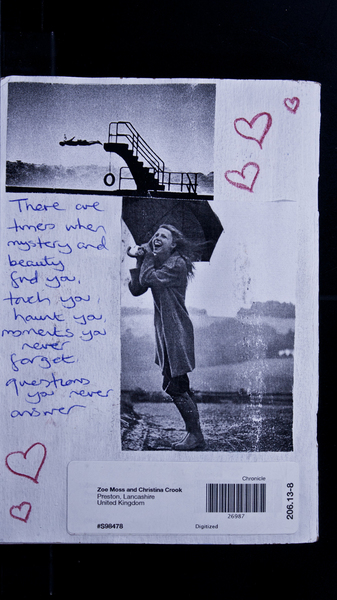 There are
times when
mystery and
beauty
find you,
touch you,
haunt you,
moments you
never
forget,
questions
you never
answer
Chronicle
Zoe Moss and Christina Crook
Preston, Lancashire
United Kingdom
26987
#S98478
Digitized
206.13-8